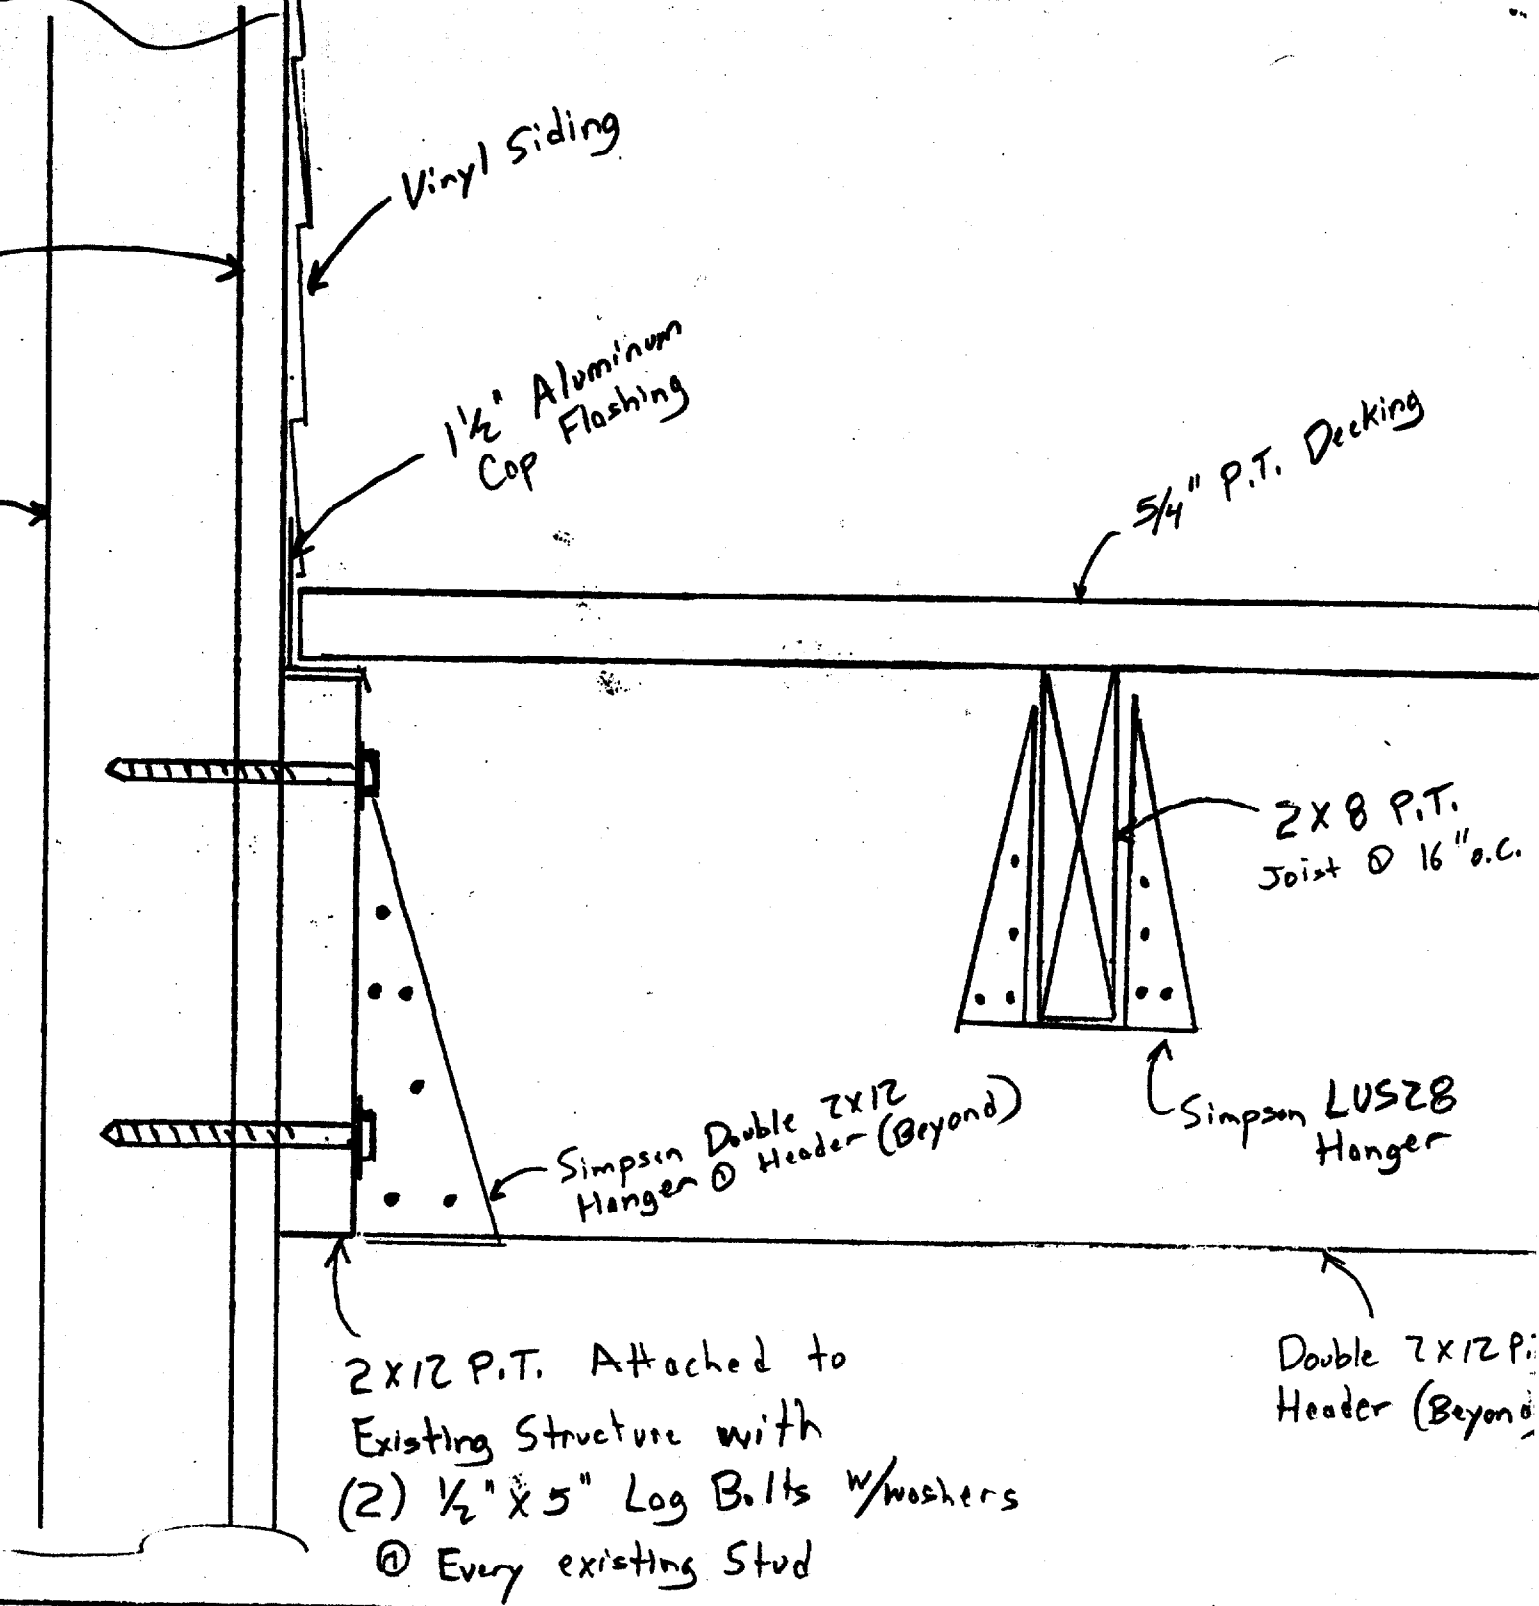 Vinyl Siding
1 1/2" Aluminum
Cap Flashing
5/4" P.T. Decking
2 X 8 P.T.
Joist @ 16" o.c.
Simpson LUS28
Hanger
Simpson Double 2X12
Hanger @ Header (Beyond)
2 X 12 P.T. Attached to
Existing Structure with
(2) 1/2" X 5" Lag Bolts w/washers
@ Every existing Stud
Double 2 X 12 P.
Header (Beyond